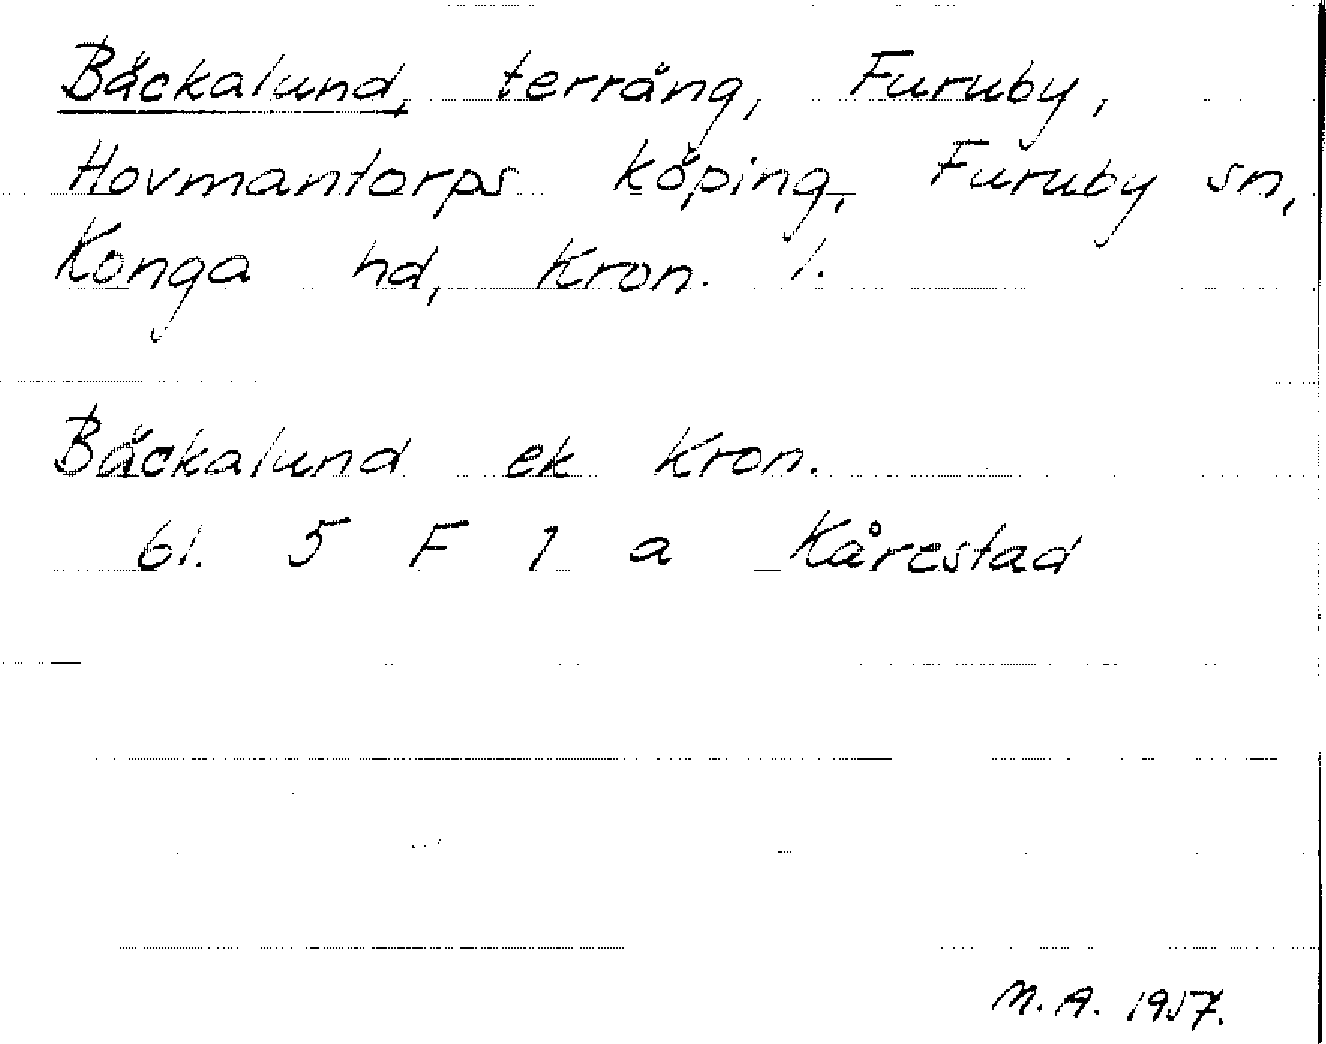 Bäckalund, terräng, Furuby,
Hovmantorps köping, Furuby sn,
Konga hd, Kron. l.
Bäckalund ek Kron.
bl. 5 F 1 a Kårestad
M.A. 1957.